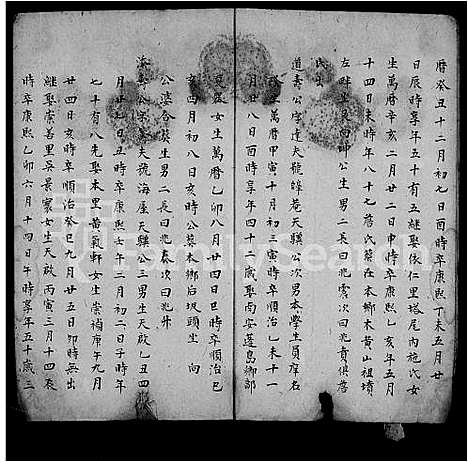 曆癸丑十二月初七日酉時卒康熙丁未五月廿
日辰時享年五十有五継娶依仁里塔尾内施氏女
生萬曆辛亥二月廿二日申時卒康熙乙亥五月
十四日未時年八十七葬氏葬在本鄉木黄山祖墳
左畔坐艮向坤公生男二長曰兆賁俱葬
氏出
道壽公字達夫號
菴天驥公次男本學生員庠名
生萬曆甲寅十月初三寅時卒順治乙未十一
月廿八日酉時享年四十二歲娶南安蓬島鄉郭
女生萬曆乙卯八月廿四日巳時卒順治己
亥四月初八日亥時公葬本鄉后坂頭坐 向
公婆合葬生男二長曰兆泰次曰兆升
壽公字美夫號海屋天驥公三男生天啟乙丑四
月廿九日丑時卒康熙壬午二月初二日子時年
七十有八先娶本里黄氣軒女生崇禎庚午九月
廿四日亥時卒順治癸巳九月廿五日卯時無出
継娶崇善里吳景寰女生天啟丙寅三月十四辰
時卒康熙乙卯六月十四日午時享年五十歲三
FamilySearch